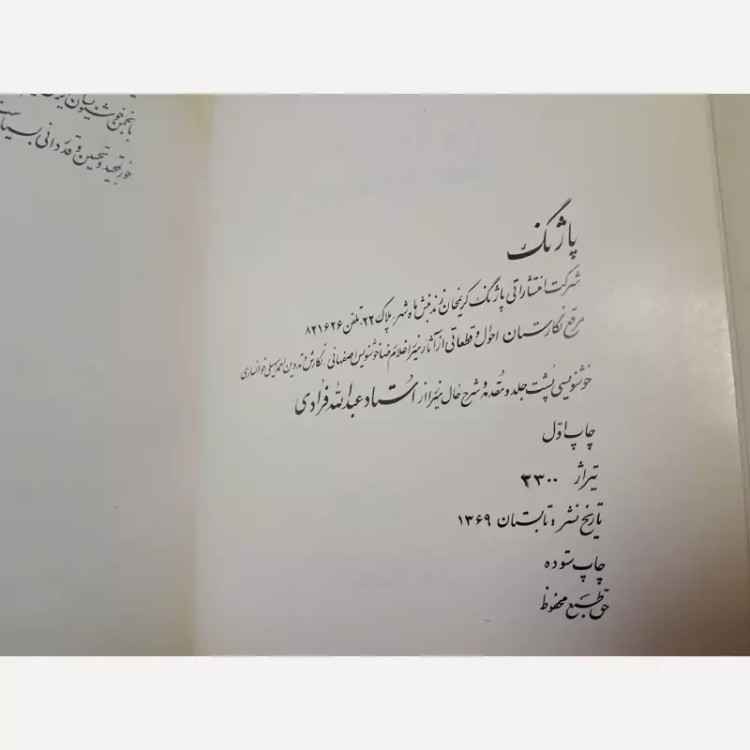 پاژنگ
شرکت انتشاراتی پاژنگ کریمخان زند نبش ماه شهر، پلاک ۲۲، تلفن ۸۲۱۶۲۶
مرقع نگارستان احوال و قطعاتی از آثار میرزا غلامرضا خوشنویس اصفهانی، نگارش و تدوین احمد سهیلی خوانساری
خوشنویسی پشت جلد و مقدمه و شرح حال میرزا از استاد عبدالله فرادی
چاپ اول
تیراژ ۳۳۰۰
تاریخ نشر، تابستان ۱۳۶۹
چاپ ستوده
حق طبع محفوظ
تمجید و تحسین و قدردانی بسیار است